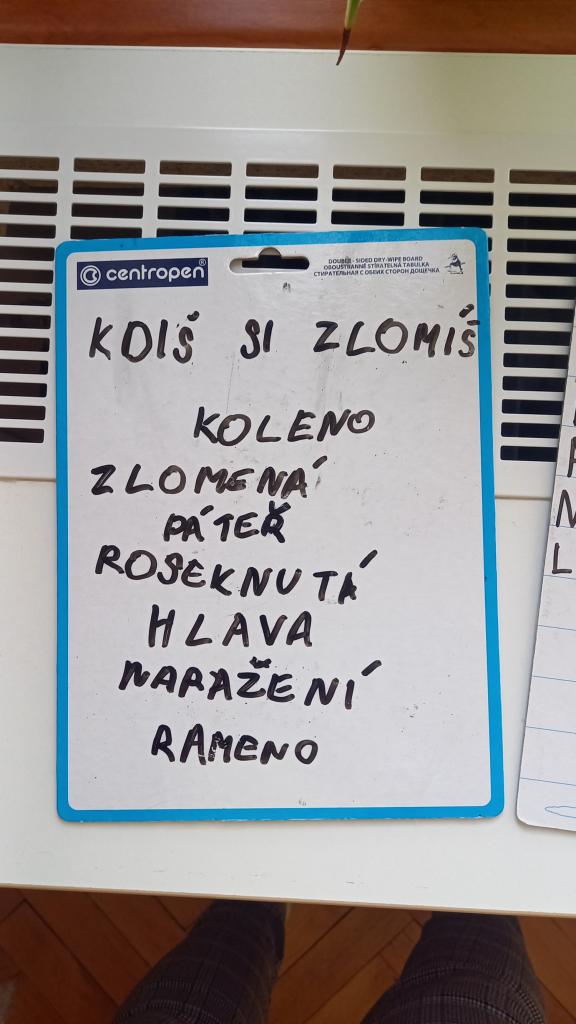 centropen®
DOUBLE - SIDED DRY-WIPE BOARD
OBOUSTRANNĚ STÍRATELNÁ TABULKA
СТИРАТЕЛЬНАЯ С ОБЕИХ СТОРОН ДОЩЕЧКА
KDIŠ SI ZLOMÍŠ
KOLENO
ZLOMENÁ
PÁTEŘ
ROSEKNUTÁ
HLAVA
NARAŽENÍ
RAMENO